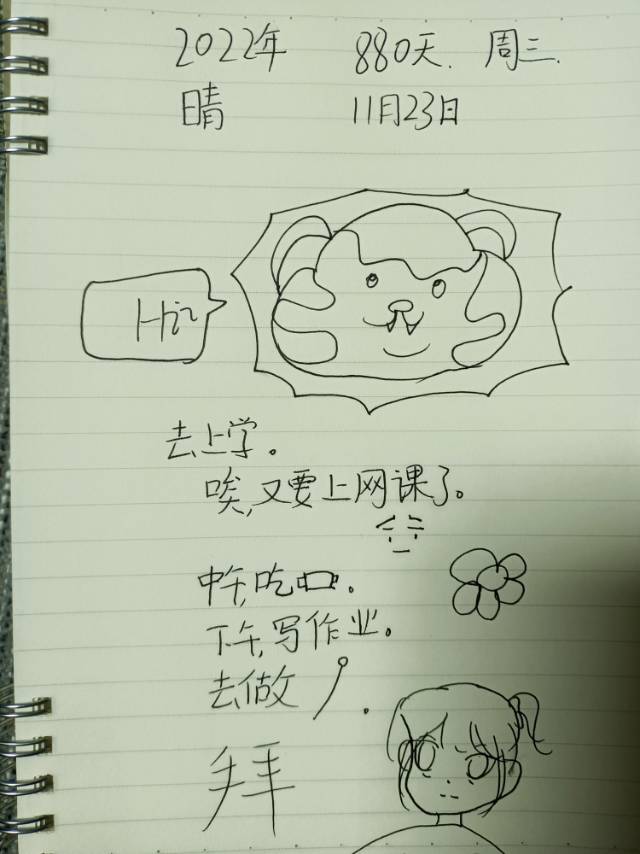 2022年 880天. 周三.
晴 11月23日
Hi~
去上学。
唉,又要上网课了。
中午,吃。
下午,写作业。
去做 .
拜